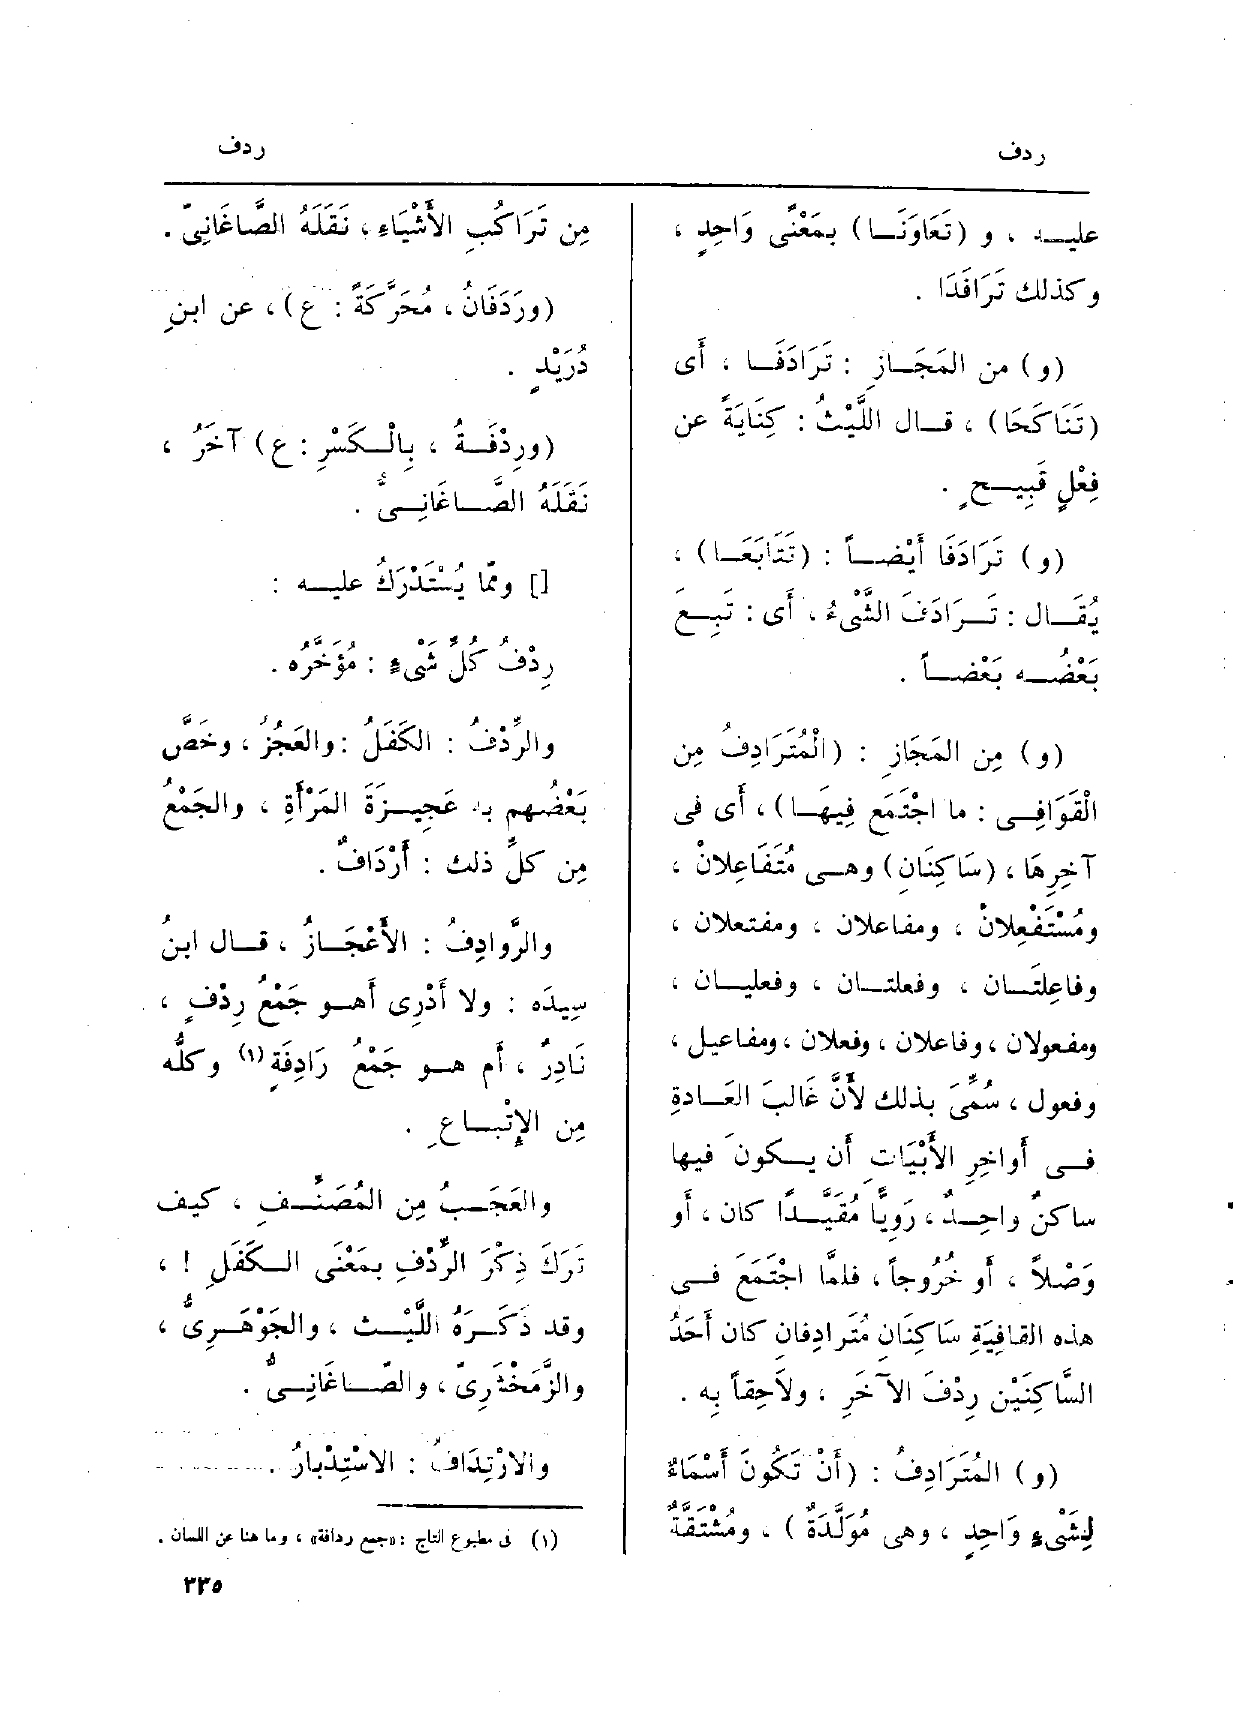 ردف
ردف
عليــه ، و (تَعَاوَنَــا) بمَعْنًى وَاحِدٍ ،
وكذلك تَرَافَدَا .
(و) من المَجَــازِ : تَرَادَفَــا ، أَى
(تَنَاكَحَا) ، قــال اللَّيْثُ : كِنَايَةً عن
فِعْلٍ قَبِيــحٍ .
(و) تَرَادَفَا أَيْضــاً : (تَتَابَعَــا) ،
يُقَــال : تَــرَادَفَ الشَّىْءُ ، أَى : تَبِــعَ
بَعْضُــه بَعْضــاً .
(و) مِن المَجَازِ : (الْمُتَرَادِفُ مِن
الْقَوَافِــى : ما اجْتَمَع فِيهَــا) ، أَى فى
آخِرِهَا ، (سَاكِنَانِ) وهــى مُتَفَاعِلانْ ،
ومُسْتَفْعِلانْ ، ومفاعلان ، ومفتعلان ،
وفاعِلتَــان ، وفعلتــان ، وفعليــان ،
ومفعولان ، وفاعلان ، وفعلان ، ومفاعيل ،
وفعول ، سُمِّىَ بذلك لأَنَّ غَالبَ العَــادةِ
فــى أَواخِرِ الأَبْيَاتِ أَن يــكونَ فيها
ساكنٌ واحِــدٌ ، رَوِيًّا مُقَيَّــدًا كان ، أَو
وَصْلاً ، أَو خُرُوجاً ، فلمَّا اجْتَمَعَ فــى
هذه القافِيَةِ سَاكِنَانِ مُتَرادِفانِ كان أَحَدُ
السَّاكِنَيْنِ رِدْفَ الآخَرِ ، ولاَحِقاً بِه .
(و) المُتَرَادِفُ : (أَنْ تَكُونَ أَسْمَاءٌ
لِشَىْءٍ وَاحِدٍ ، وهى مُوَلَّدَةٌ ) ، ومُشْتَقَّةٌ
مِن تَرَاكُبِ الأَشْيَاءِ ، نَقَلَهُ الصَّاغَانِىّ .
(ورَدَفَانُ ، مُحَرَّكَةً : ع) ، عن ابنِ
دُرَيْدٍ .
(ورِدْفَــةُ ، بِالْــكَسْرِ : ع) آخَرُ ،
نَقَلَهُ الصَّــاغَانِــىُّ .
[] وممّا يُسْتَدْرَكُ عليــه :
رِدْفُ كُلِّ شَىْءٍ : مُؤَخَّرُه .
والرِّدْفُ : الكَفَلُ : والعَجُزُ ، وخَصَّ
بَعْضُهم به عَجِيــزَةَ المَرْأَةِ ، والجَمْعُ
مِن كلِّ ذلك : أَرْدَافٌ .
والرَّوادِفُ : الأَعْجَــازُ ، قــال ابنُ
سِيدَه : ولا أَدْرِى أَهــو جَمْعُ رِدْفٍ ،
نَادِرٌ ، أَم هــو جَمْعُ رَادِفَةٍ (١) وكلُّه
مِن الإِتْبــاعِ .
والعَجَــبُ مِن المُصَنِّــفِ ، كيف
تَرَكَ ذِكْرَ الرِّدْفِ بمَعْنَى الــكَفَلِ ! ،
وقد ذَكَــرَهُ اللَّيْــث ، والجَوْهَــرِىُّ ،
والزَّمَخْشَرِىّ ، والصّــاغَانِــىُّ .
والارْتِدَافُ : الاسْتِدْبارُ .
(١) فى مطبوع التاج : «جمع ردافة» ، وما هنا عن اللسان .
٣٣٥